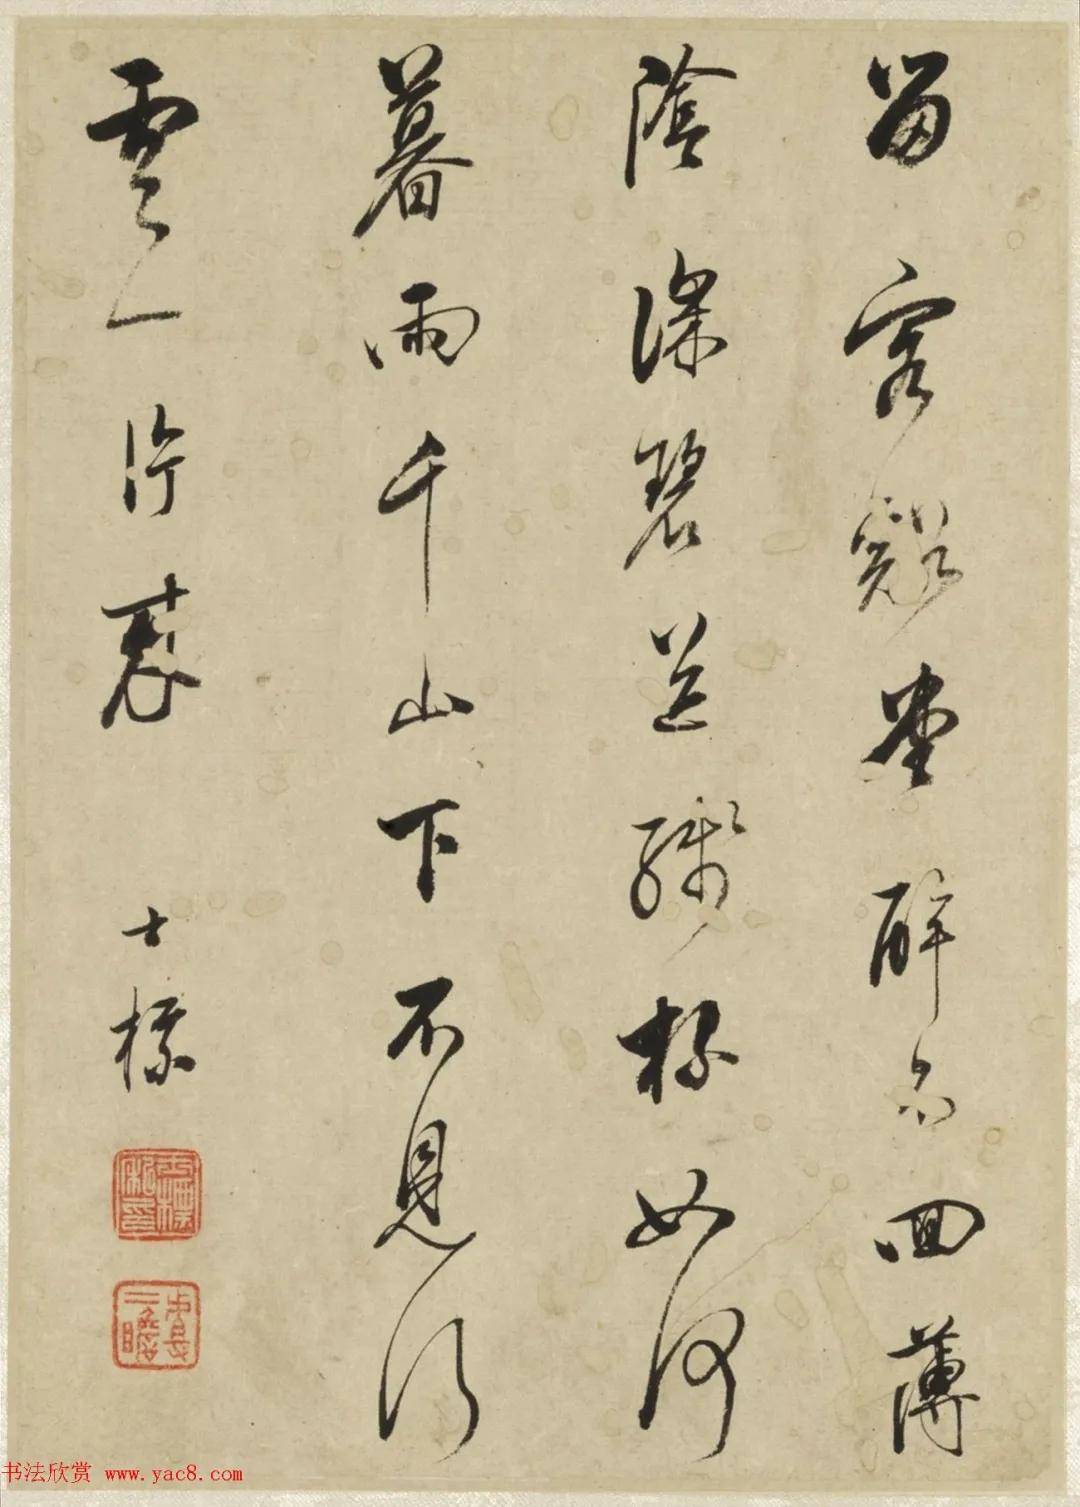 留客谿堂醉不回薄
陰深碧芝殘杯如何
暮雨千山下不見行
雲一片来
士標
書法欣赏 www.yac8.com